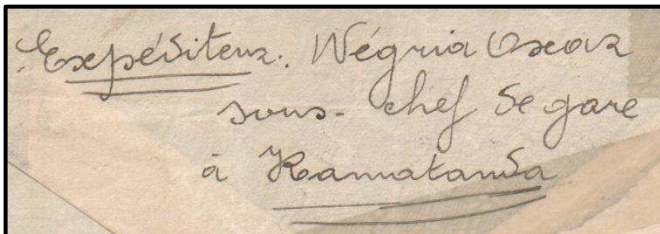 Expéditeur. Wégria Oscar
sous-chef de gare
à Kamatanda